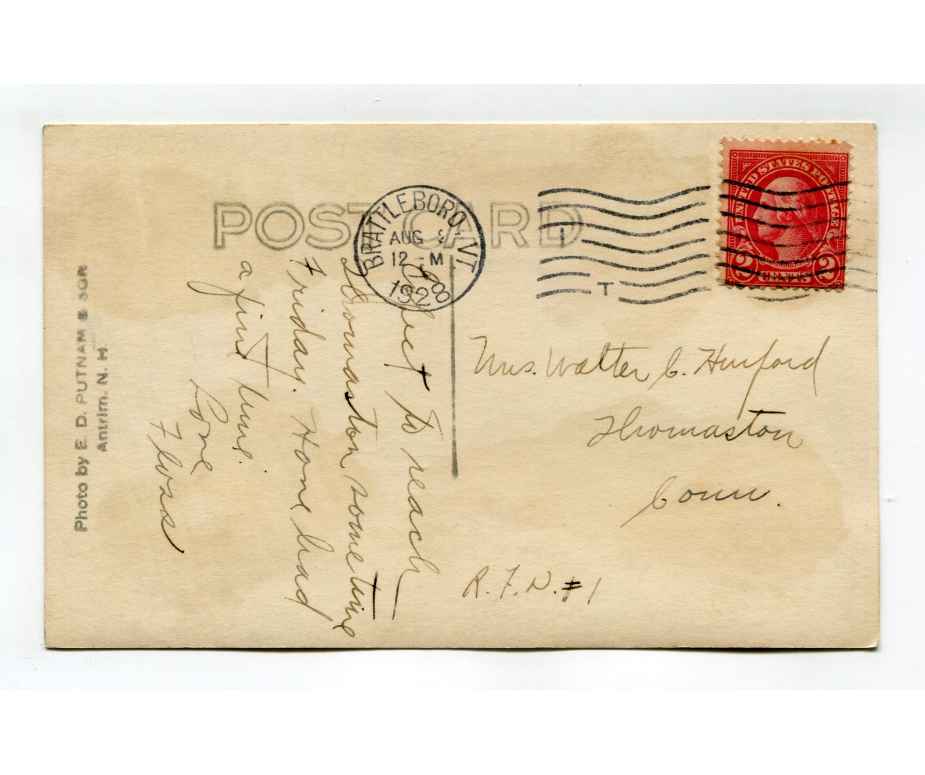 POST CARD
BRATTLEBORO, VT
AUG 8
12 - M
1928
UNITED STATES POSTAGE
2 CENTS 2
T
Expect to reach
Thomaston sometime
Friday. Have had
a fine time.
Love
Floss
Mrs. Walter C. Hurford
Thomaston
Conn.
R.F.D. #1
Photo by E. D. PUTNAM & SON
Antrim, N. H.